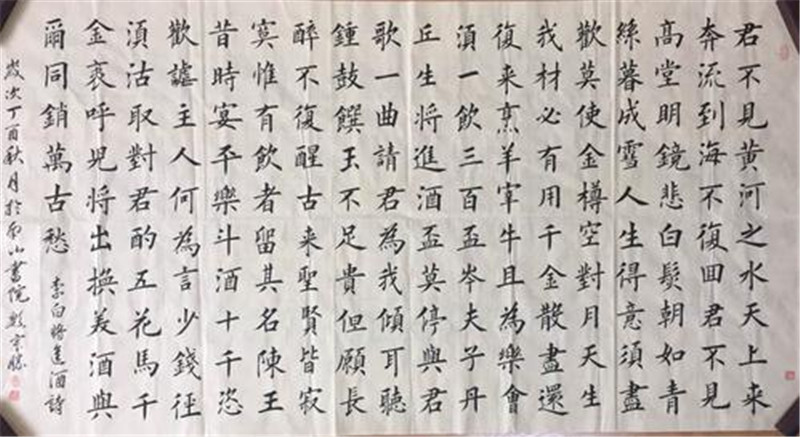 君不見黃河之水天上来
奔流到海不復囬君不見
高堂明鏡悲白髮朝如青
絲暮成雪人生得意須盡
歡莫使金樽空對月天生
我材必有用千金散盡還
復来烹羊宰牛且為樂會
須一飲三百盃岑夫子丹
丘生将進酒盃莫停與君
歌一曲請君為我傾耳聽
鍾鼓饌玉不足貴但願長
醉不復醒古来聖賢皆寂
寞惟有飲者留其名陳王
昔時宴平樂斗酒十千恣
歡謔主人何為言少錢徑
須沽取對君酌五花馬千
金裘呼兒将出換美酒與
爾同銷萬古愁
李白将進酒詩
歲次丁酉秋月於南山書院